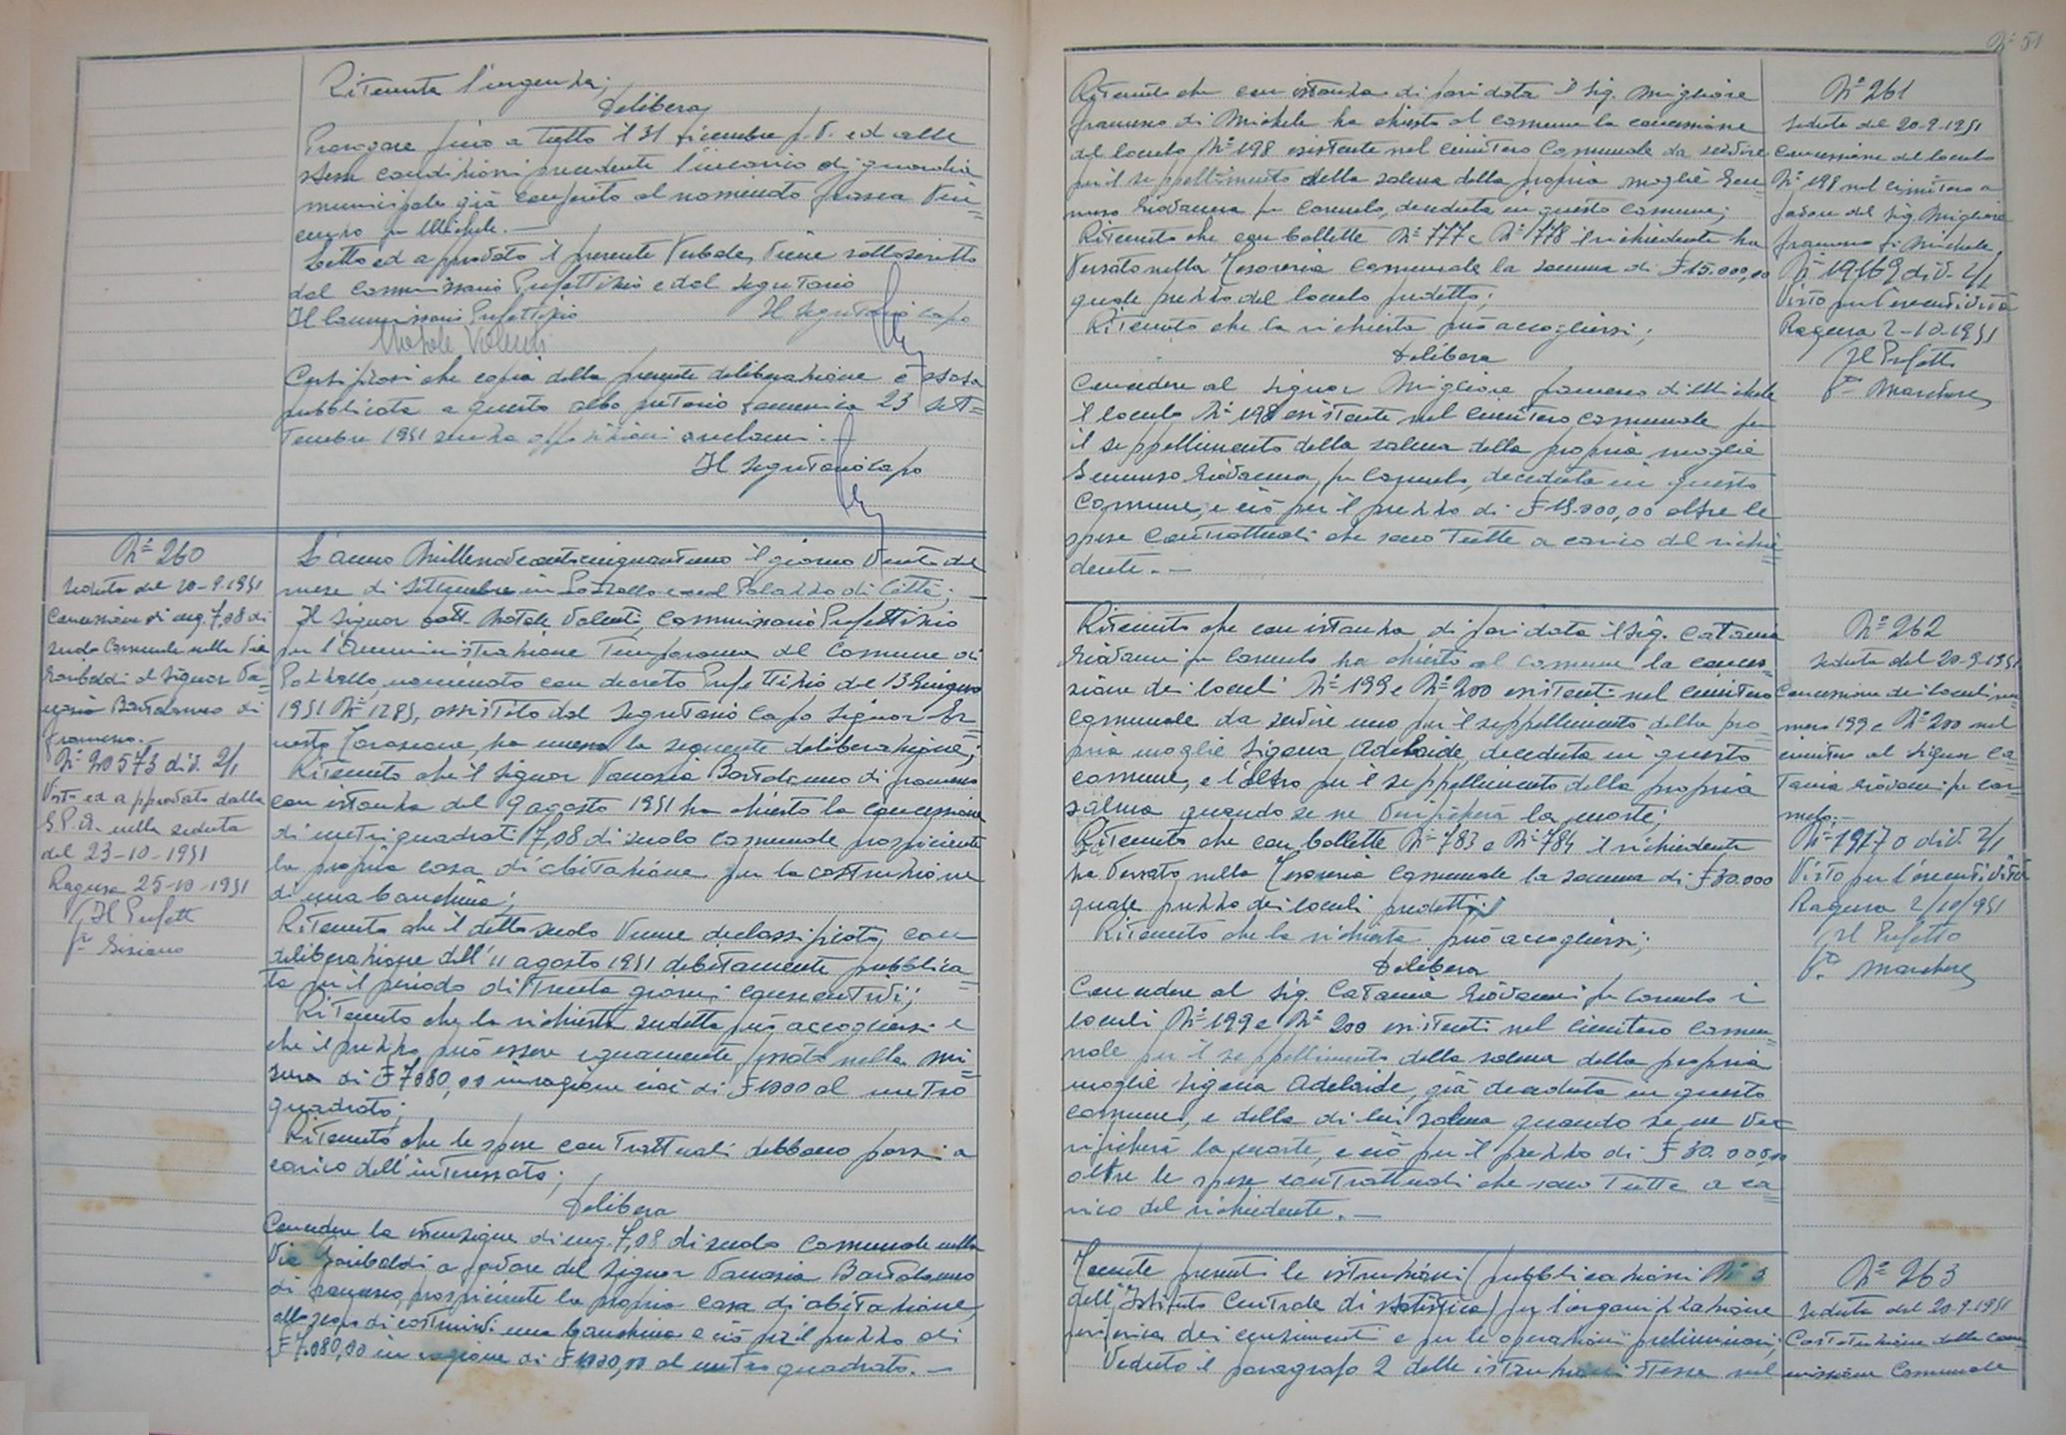 Ritenuta l'urgenza;
Delibera
Prorogare fino a tutto il 31 dicembre p.v. ed alle
stesse condizioni precedente l'incarico di guardia
municipale già conferito al nominato Vin=
cenzo fu Michele. —
Letto ed approvato il presente Verbale, viene sottoscritto
dal Commissario Prefettizio e dal Segretario
Il Commissario Prefettizio Il Segretario Capo
Certificasi che copia della presente deliberazione è stata
pubblicata a questo albo pretorio domenica 23 Set=
tembre 1951 senza opposizioni o reclami. —
Il Segretario Capo
Nº 260
Seduta del 20-9-1951
Concessione di mq. 7,08 di
suolo Comunale nella Via
Garibaldi al Signor Va=
Bartolomeo di
Francesco. —
Nº 20573 div. 2/1
Visto ed approvato dalla
G.P.A. nella seduta
del 23-10-1951
Ragusa 25-10-1951
Il Prefetto
L'anno Millenovecentocinquantuno il giorno Venti del
mese di Settembre in Pozzallo e nel Palazzo di Città; —
Il Signor Dott. Natale Valenti, Commissario Prefettizio
per l'Amministrazione Temporanea del Comune di
Pozzallo, nominato con decreto Prefettizio del 13 Giugno
1951 Nº 1285, assistito dal Segretario Capo Signor Er=
nesto ha emesso la seguente deliberazione;
Ritenuto che il Signor Bartolomeo di Francesco
con istanza del 9 agosto 1951 ha chiesto la concessione
di metri quadrati 7,08 di suolo comunale prospiciente
la propria casa di abitazione per la costruzione
di una banchina;
Ritenuto che il detto suolo venne declassificato, con
deliberazione dell'11 agosto 1951 debitamente pubblica=
ta per il periodo di Trenta giorni consecutivi;
Ritenuto che la richiesta sudetta può accogliersi e
che il prezzo può essere equamente fissato nella mi=
sura di £ 7080,00 in ragione cioè di £ 1000 al metro
quadrato;
Ritenuto che le spese contrattuali debbano porsi a
carico dell'interessato;
Delibera
Concedere la di mq. 7,08 di suolo Comunale nella
Via Garibaldi a favore del Signor Bartolomeo
di Francesco, prospiciente la propria casa di abitazione,
allo scopo di costruirvi una banchina e ciò per il prezzo di
£ 7.080,00 in ragione di £ 1000,00 al metro quadrato. —
Nº 51
Ritenuto che con istanza di pari data il Sig. Migliore
Francesco di Michele ha chiesto al comune la concessione
del loculo Nº 198 esistente nel cimitero Comunale da servire
per il seppellimento della salma della propria moglie
Giovanna fu Carmelo, deceduta in questo comune;
Ritenuto che con bollette Nº 777 e Nº 778 il richiedente ha
versato nella Tesoreria Comunale la somma di £ 15.000,00
quale prezzo del loculo predetto;
Ritenuto che la richiesta può accogliersi;
Delibera
Concedere al Signor Migliore Francesco di Michele
il loculo Nº 198 esistente nel cimitero comunale per
il seppellimento della salma della propria moglie
Giovanna fu Carmelo, deceduta in questo
Comune, e ciò per il prezzo di £ 15.000,00 oltre le
spese Contrattuali che sono Tutte a carico del richie=
dente. —
Nº 261
Seduta del 20-9-1951
Concessione del loculo
Nº 198 nel cimitero a
favore del Sig. Migliore
Francesco di Michele
Nº 19169 div. 2/1
Visto per l'esecutività
Ragusa 2-10-1951
Il Prefetto
Ritenuto che con istanza di pari data il Sig. Catania
Giovanni fu Carmelo ha chiesto al comune la conces=
sione dei loculi Nº 199 e Nº 200 esistenti nel cimitero
comunale da servire uno per il seppellimento della pro=
pria moglie Sigona Adelaide, deceduta in questo
comune, e l'altro per il seppellimento della propria
salma quando se ne verificherà la morte;
Ritenuto che con bollette Nº 783 e Nº 784 il richiedente
ha versato nella Tesoreria Comunale la somma di £ 30.000
quale prezzo dei loculi predetti;
Ritenuto che la richiesta può accogliersi;
Delibera
Concedere al Sig. Catania Giovanni fu Carmelo i
loculi Nº 199 e Nº 200 esistenti nel cimitero comu=
nale per il seppellimento della salma della propria
moglie Sigona Adelaide, già deceduta in questo
comune, e della di lui salma quando se ne ve=
rificherà la morte, e ciò per il prezzo di £ 30.000,00
oltre le spese contrattuali che sono Tutte a ca=
rico del richiedente. —
Nº 262
Seduta del 20-9-1951
Concessione dei loculi nu=
mero 199 e Nº 200 nel
cimitero al Signor Ca=
tania Giovanni fu Car=
melo. —
Nº 19170 div. 2/1
Visto per l'esecutività
Ragusa 2/10/951
Il Prefetto
Tenute presenti le istruzioni (pubblicazioni Nº 3
dell'Istituto Centrale di statistica) per l'organizzazione
periferica dei censimenti e per le operazioni preliminari;
Veduto il paragrafo 2 delle istruzioni stesse nel
Nº 263
Seduta del 20-9-1951
Costituzione della com=
missione Comunale